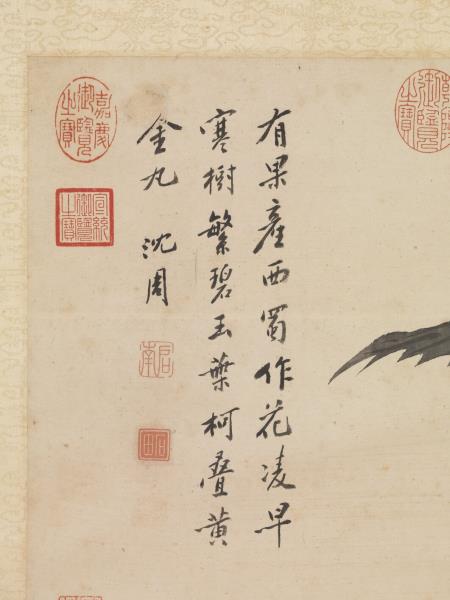 有果産西蜀作花凌早
寒樹繁碧玉葉柯叠黄
金丸 沈周
启南
石田
乾隆御覽之寶
嘉慶御覽之寶
宣統御覽之寶